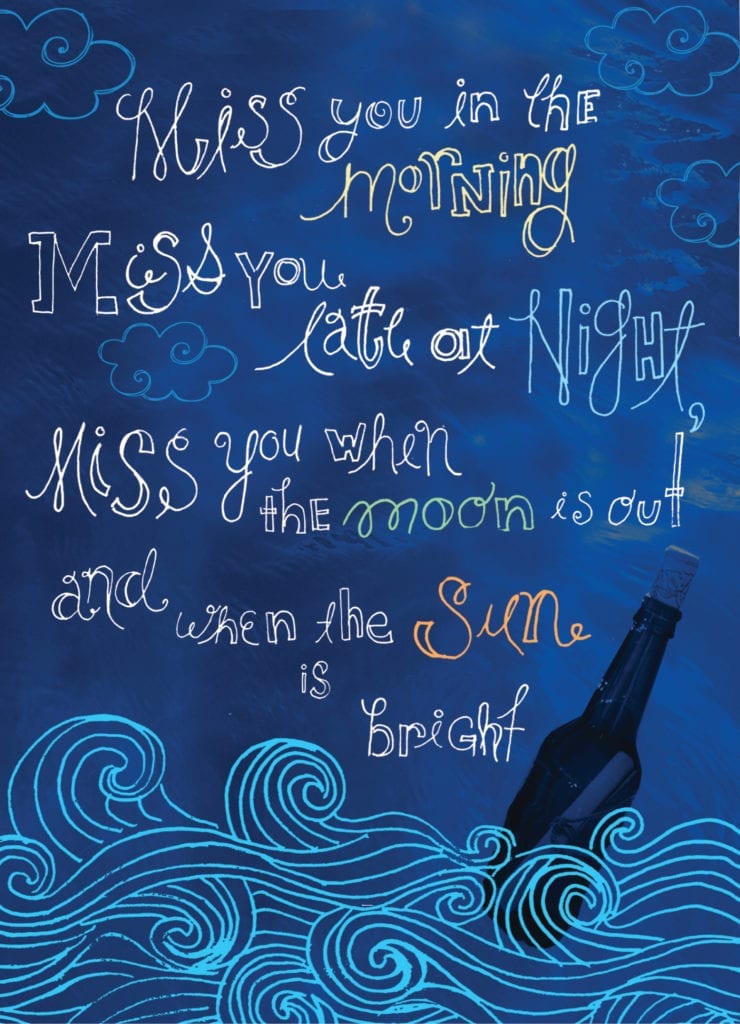 Miss you in the
morning
Miss you
late at Night,
Miss you when
the moon is out
and when the Sun
is
bright